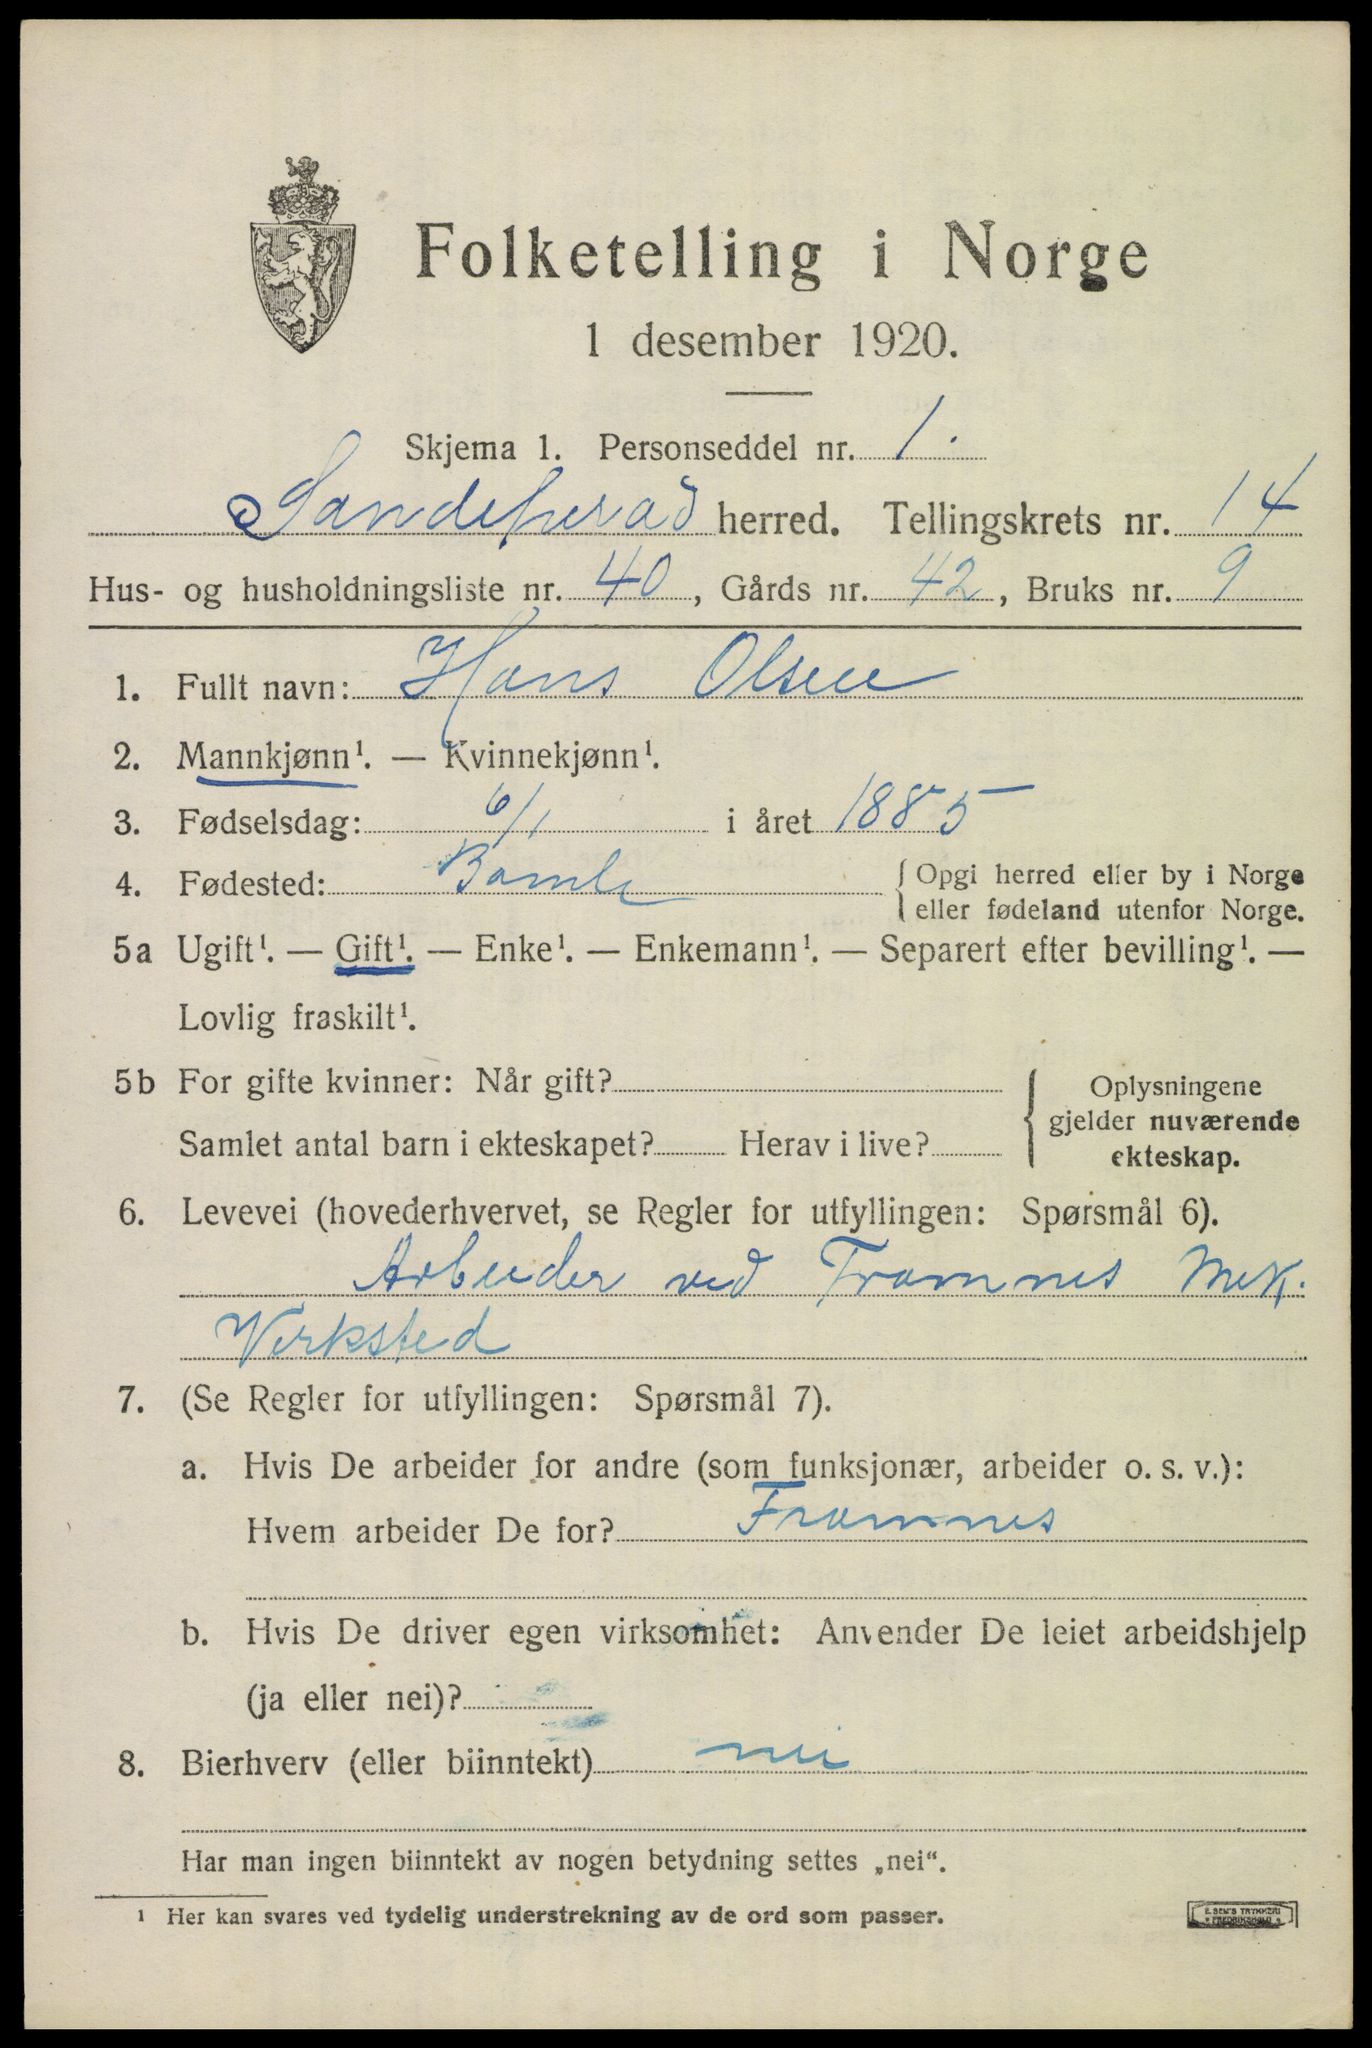 Folketelling i Norge
1 desember 1920.
Skjema 1. Personseddel nr. 1.
Sandeherad herred. Tellingskrets nr. 14
Hus- og husholdningsliste nr. 40, Gårds nr. 42, Bruks nr. 9
1. Fullt navn: Hans Olsen
2. Mannkjønn¹. — Kvinnekjønn¹.
3. Fødselsdag: 6/1 i året 1885
4. Fødested: Bamle { Opgi herred eller by i Norge
eller fødeland utenfor Norge.
5a Ugift¹. — Gift¹. — Enke¹. — Enkemann¹. — Separert efter bevilling¹. —
Lovlig fraskilt¹.
5b For gifte kvinner: Når gift?
Samlet antal barn i ekteskapet? Herav i live?
{ Oplysningene
gjelder nuværende
ekteskap.
6. Levevei (hovederhvervet, se Regler for utfyllingen: Spørsmål 6).
Arbeider ved Framnes Mek.
Verksted
7. (Se Regler for utfyllingen: Spørsmål 7).
a. Hvis De arbeider for andre (som funksjonær, arbeider o. s. v.):
Hvem arbeider De for? Framnes
b. Hvis De driver egen virksomhet: Anvender De leiet arbeidshjelp
(ja eller nei)?
8. Bierhverv (eller biinntekt) nei
Har man ingen biinntekt av nogen betydning settes „nei“.
¹ Her kan svares ved tydelig understrekning av de ord som passer.
E. SEM'S TRYKKERI
FREDRIKSHALD